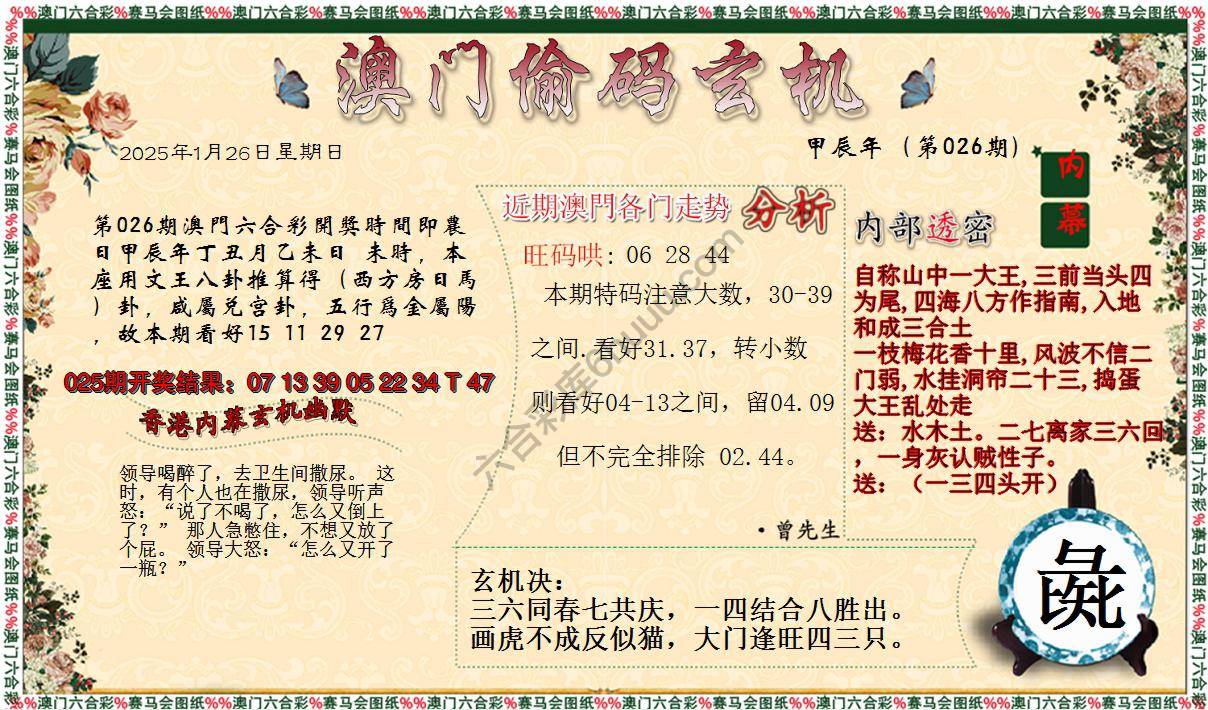 %%澳门六合彩%赛马会图纸%%澳门六合彩%赛马会图纸%%澳门六合彩%赛马会图纸%%澳门六合彩%赛马会图纸%%澳门六合彩%赛马会图纸%%澳门六合彩%赛马会图纸%%
澳门偷码玄机
2025年1月26日星期日
甲辰年（第026期）
内幕
第026期澳門六合彩開獎時間即農
日甲辰年丁丑月乙未日 未時，本
座用文王八卦推算得（西方房日馬
）卦，咸屬兑宫卦，五行爲金屬陽
，故本期看好15 11 29 27
025期开奖结果：07 13 39 05 22 34 T 47
香港内幕玄机幽默
领导喝醉了，去卫生间撒尿。 这
时，有个人也在撒尿，领导听声
怒：“说了不喝了，怎么又倒上
了？” 那人急憋住，不想又放了
个屁。 领导大怒：“怎么又开了
一瓶？”
近期澳門各门走势 分析
旺码哄: 06 28 44
本期特码注意大数，30-39
之间.看好31.37，转小数
则看好04-13之间，留04.09
但不完全排除 02.44。
·曾先生
内部透密
自称山中一大王,三前当头四
为尾,四海八方作指南,入地
和成三合土
一枝梅花香十里,风波不信二
门弱,水挂洞帘二十三,捣蛋
大王乱处走
送：水木土。二七离家三六回
，一身灰认贼性子。
送：（一三四头开）
玄机决：
三六同春七共庆，一四结合八胜出。
画虎不成反似猫，大门逢旺四三只。